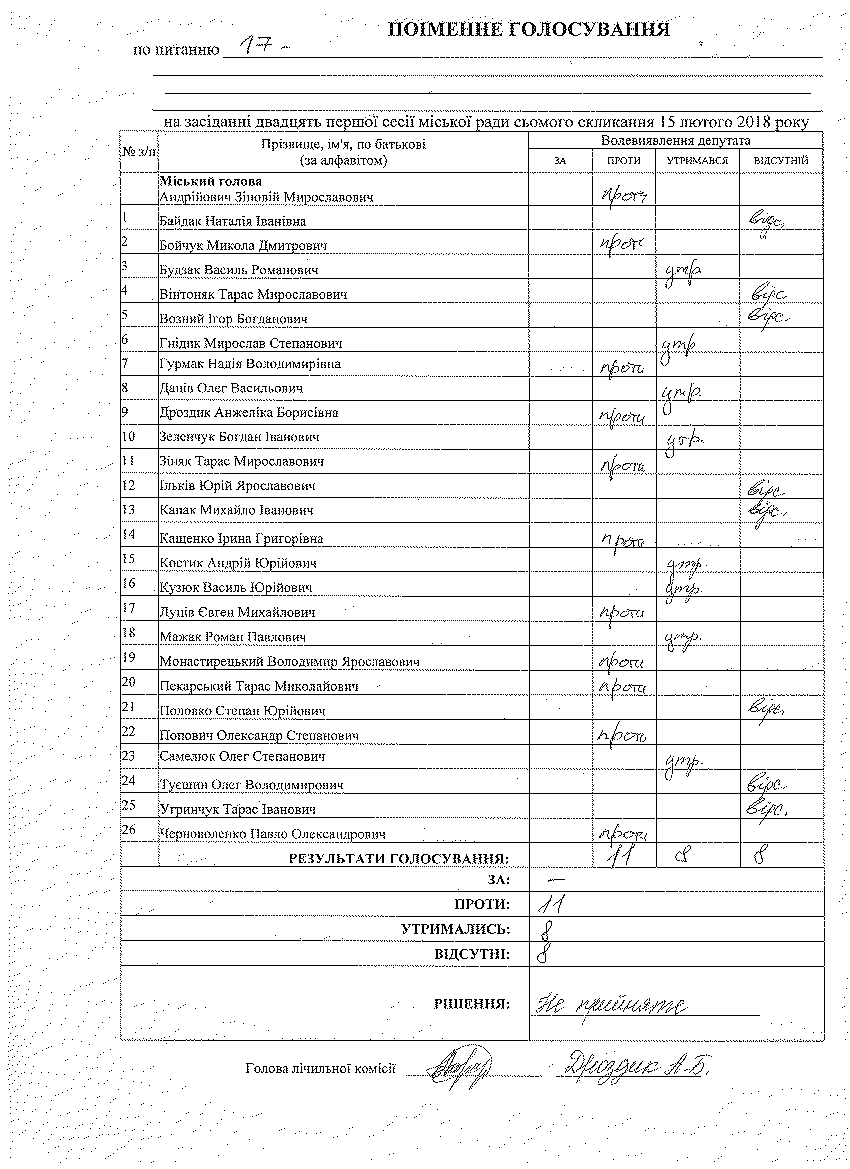 ПОІМЕННЕ ГОЛОСУВАННЯ
по питанню 17-
на засіданні двадцять першої сесії міської ради сьомого скликання 15 лютого 2018 року
№ з/п Прізвище, ім'я, по батькові (за алфавітом) Волевиявлення депутата
ЗА ПРОТИ УТРИМАВСЯ ВІДСУТНІЙ
Міський голова
Андрійович Зіновій Мирославович проти
1 Байдак Наталія Іванівна відс.
2 Бойчук Микола Дмитрович проти
3 Будзак Василь Романович утр
4 Вінтоняк Тарас Мирославович відс
5 Возний Ігор Богданович відс.
6 Гнідик Мирослав Степанович утр
7 Гурмак Надія Володимирівна проти
8 Данів Олег Васильович утр.
9 Дроздик Анжеліка Борисівна проти
10 Зеленчук Богдан Іванович утр.
11 Зіняк Тарас Мирославович проти
12 Ільків Юрій Ярославович відс
13 Капак Михайло Іванович відс.
14 Кащенко Ірина Григорівна проти
15 Костик Андрій Юрійович утр.
16 Кузюк Василь Юрійович утр.
17 Луців Євген Михайлович проти
18 Мажак Роман Павлович утр.
19 Монастирецький Володимир Ярославович проти
20 Пекарський Тарас Миколайович проти
21 Половко Степан Юрійович відс.
22 Попович Олександр Степанович проти
23 Самелюк Олег Степанович утр.
24 Туєшин Олег Володимирович відс
25 Угринчук Тарас Іванович відс.
26 Черноволенко Павло Олександрович проти
РЕЗУЛЬТАТИ ГОЛОСУВАННЯ: 11 8 8
ЗА: —
ПРОТИ: 11
УТРИМАЛИСЬ: 8
ВІДСУТНІ: 8
РІШЕННЯ: Не прийняте
Голова лічильної комісії Дроздик А.Б.